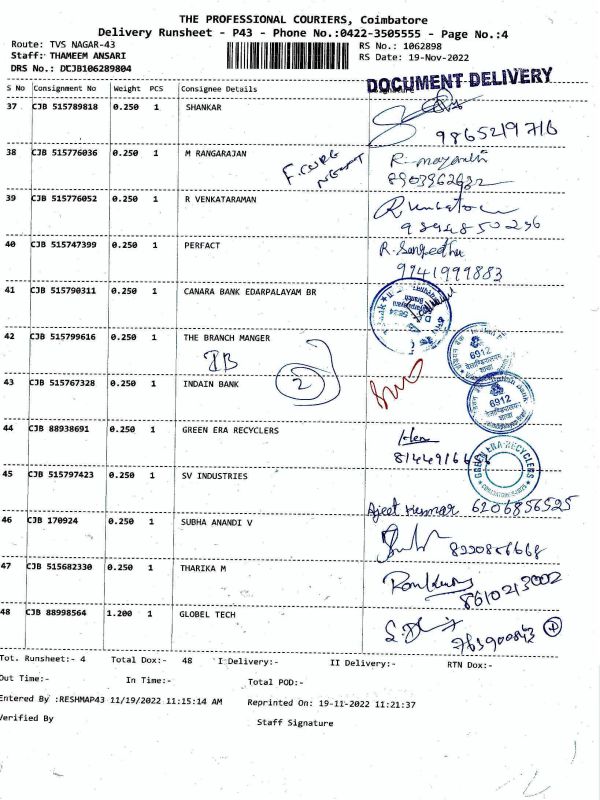 THE PROFESSIONAL COURIERS, Coimbatore
Delivery Runsheet - P43 - Phone No.:0422-3505555 - Page No.:4
Route: TVS NAGAR-43 RS No.: 1062898
Staff: THAMEEM ANSARI RS Date: 19-Nov-2022
DRS No.: DCJB106289804
DOCUMENT DELIVERY
S No Consignment No Weight PCS Consignee Details
37 CJB 515789818 0.250 1 SHANKAR
9865219716
38 CJB 515776036 0.250 1 M RANGARAJAN
8903962632
39 CJB 515776052 0.250 1 R VENKATARAMAN
R Venkatara
9894850236
40 CJB 515747399 0.250 1 PERFACT
R. Sangeetha
9941999883
41 CJB 515790311 0.250 1 CANARA BANK EDARPALAYAM BR
42 CJB 515799616 0.250 1 THE BRANCH MANGER
IB
6912
43 CJB 515767328 0.250 1 INDAIN BANK
2
6912
44 CJB 88938691 0.250 1 GREEN ERA RECYCLERS
GREEN ERA RECYCLERS
45 CJB 515797423 0.250 1 SV INDUSTRIES
Ajeet Kumar 6206856525
46 CJB 170924 0.250 1 SUBHA ANANDI V
47 CJB 515682330 0.250 1 THARIKA M
8610213002
48 CJB 88998564 1.200 1 GLOBEL TECH
Tot. Runsheet:- 4 Total Dox:- 48 I Delivery:- II Delivery:- RTN Dox:-
Out Time:- In Time:- Total POD:-
Entered By :RESHMAP43 11/19/2022 11:15:14 AM Reprinted On: 19-11-2022 11:21:37
Verified By Staff Signature